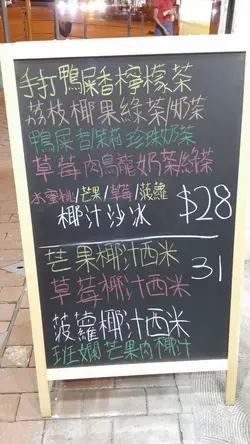 手打鴨屎香檸檬茶
荔枝椰果綠茶/奶茶
鴨屎香茉莉珍珠奶茶
草莓肉烏龍奶茶綠茶
水蜜桃/芒果/草莓/菠蘿
椰汁沙冰 $28
芒果椰汁西米 31
草莓椰汁西米
菠蘿椰汁西米
班斕芒果肉椰汁